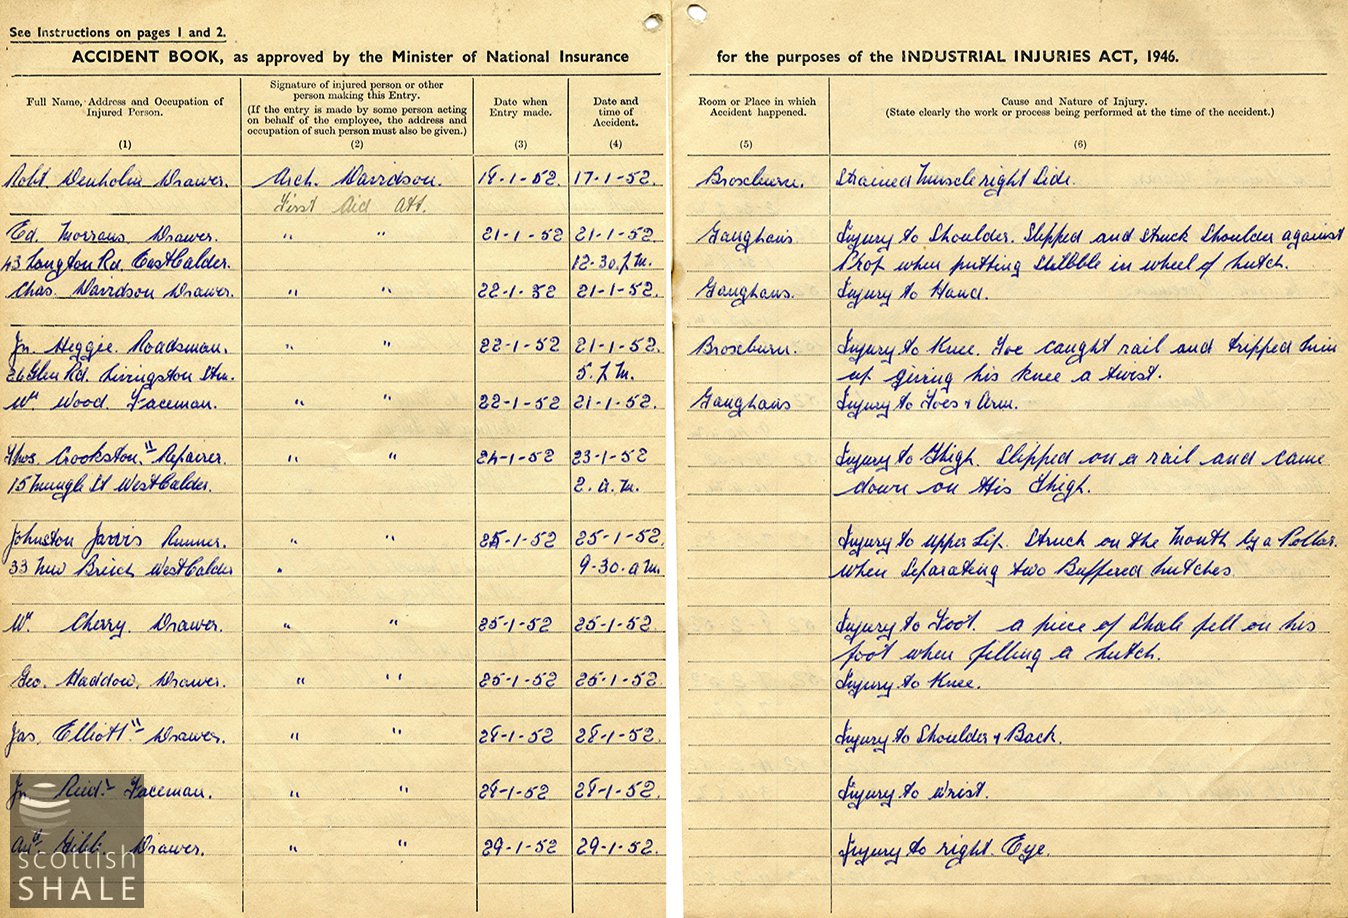 See Instructions on pages 1 and 2.
ACCIDENT BOOK, as approved by the Minister of National Insurance for the purposes of the INDUSTRIAL INJURIES ACT, 1946.
Full Name, Address and Occupation of
Injured Person.
(1)
Signature of injured person or other
person making this Entry.
(If the entry is made by some person acting
on behalf of the employee, the address and
occupation of such person must also be given.)
(2)
Date when
Entry made.
(3)
Date and
time of
Accident.
(4)
Room or Place in which
Accident happened.
(5)
Cause and Nature of Injury.
(State clearly the work or process being performed at the time of the accident.)
(6)
Robt. Denholm Drawer. Arch. Davidson. 18-1-52. 17-1-52. Broxburn. Strained Muscle right Side.
First Aid Att.
Ed. Drawer. " " 21-1-52 21-1-52. Injury to Shoulder. Slipped and Struck Shoulder against
43 Langton Rd. East Calder. 12-30.P.M. Prop when putting in wheel of hutch.
Chas. Davidson Drawer. " " 22-1-52 21-1-52. Injury to Hand.
Jn. Heggie. Roadsman. " " 22-1-52 21-1-52. Broxburn. Injury to Knee. Toe caught rail and tripped him
26 Glen Rd. Livingston Stn. 5.P.M. up giving his knee a twist.
Wm Wood. Faceman. " " 22-1-52 21-1-52. Injury to Toes & Arm.
Thos. Crookston." Repairer. " " 24-1-52 23-1-52 Injury to Thigh. Slipped on a rail and came
15 Mungle St West Calder. 2.a.m. down on His Thigh.
Johnston Jarvis Runner. " " 25-1-52 25-1-52. Injury to upper Lip. Struck on the Mouth by a
33 New Breich West Calder " 9-30.a.m. when Separating two Buffered hutches.
Wm Cherry. Drawer. " " 25-1-52 25-1-52. Injury to Foot. a piece of Shale fell on his
foot when filling a hutch.
Geo. Haddow. Drawer. " " 25-1-52 25-1-52. Injury to Knee.
Jas. Elliott." Drawer. " " 28-1-52 28-1-52. Injury to Shoulder & Back.
Jn. Reid. Faceman. " " 28-1-52 28-1-52. Injury to Wrist.
Gibb. Drawer. " " 29-1-52 29-1-52. Injury to right Eye.
scottish
SHALE